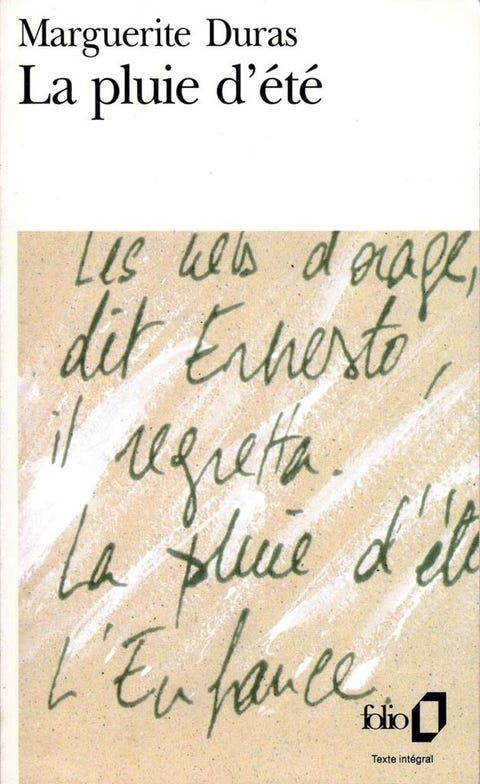 Marguerite Duras
La pluie d'été
Les ciels d'orage,
dit Ernesto,
il regretta.
La pluie d'été
L'Enfance.
folio
Texte intégral